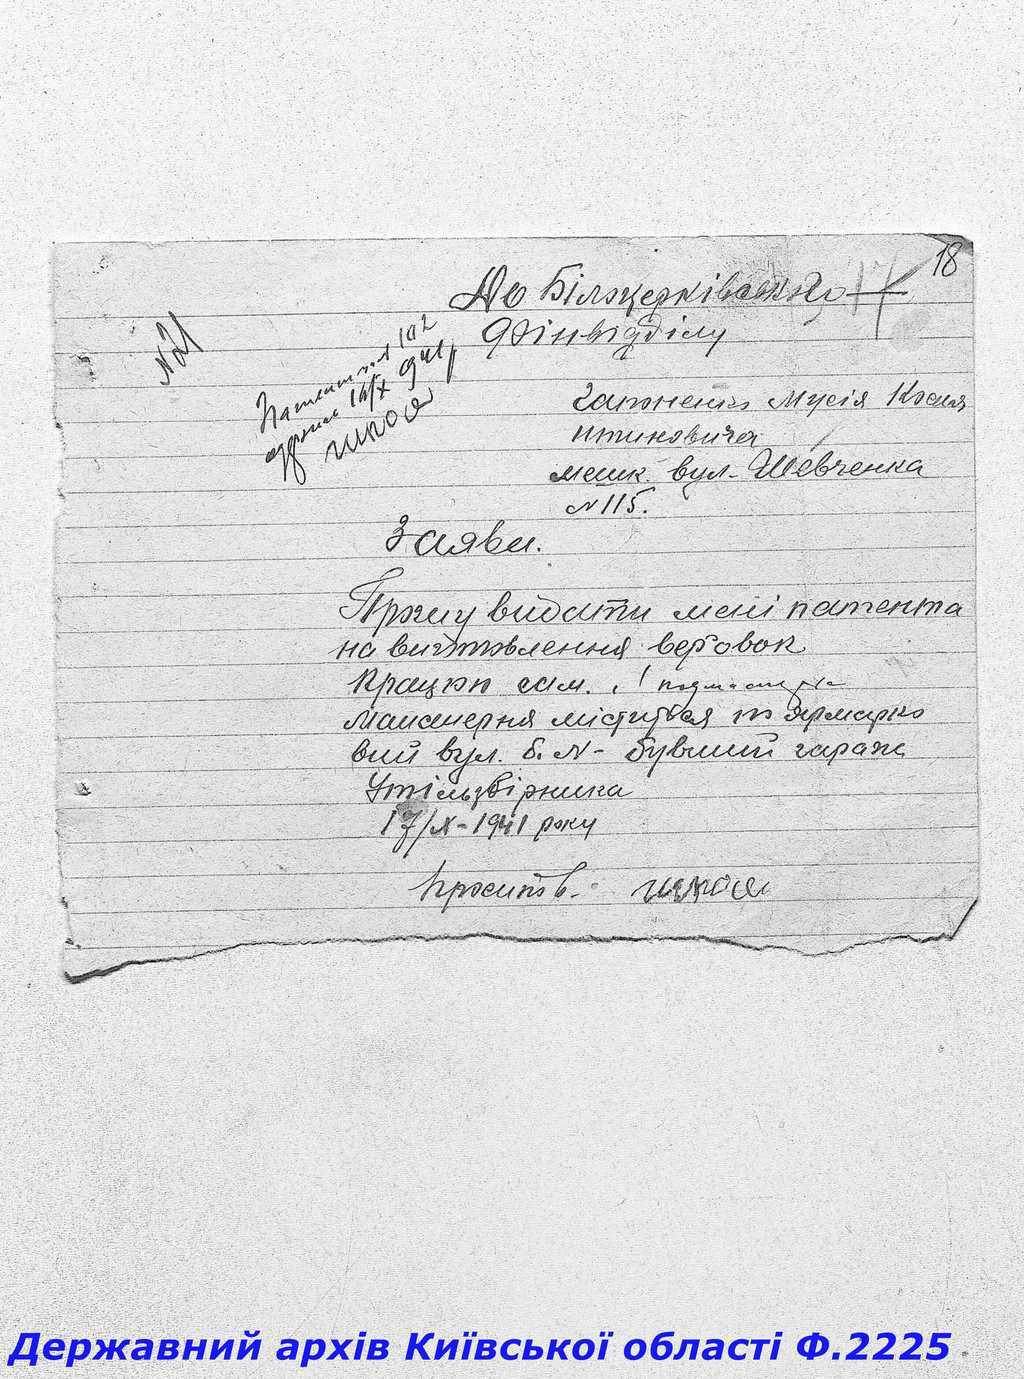 18
17
До Білоцерківського
Фінвідділу
№21
Патент № 102
одержав 16/X 941 р
Гапоненко Мусія Конста
нтиновича
мешк. вул. Шевченка
№ 115.
Заява.
Прошу видати мені патента
на виготовлення верʼовок
Працюю сам.
Майстерня міститься по Ярмарко
вий вул. б. № - бувший гараж
Утільзбірника
17/X - 1941 року
Проситель.
Державний архів Київської області Ф.2225